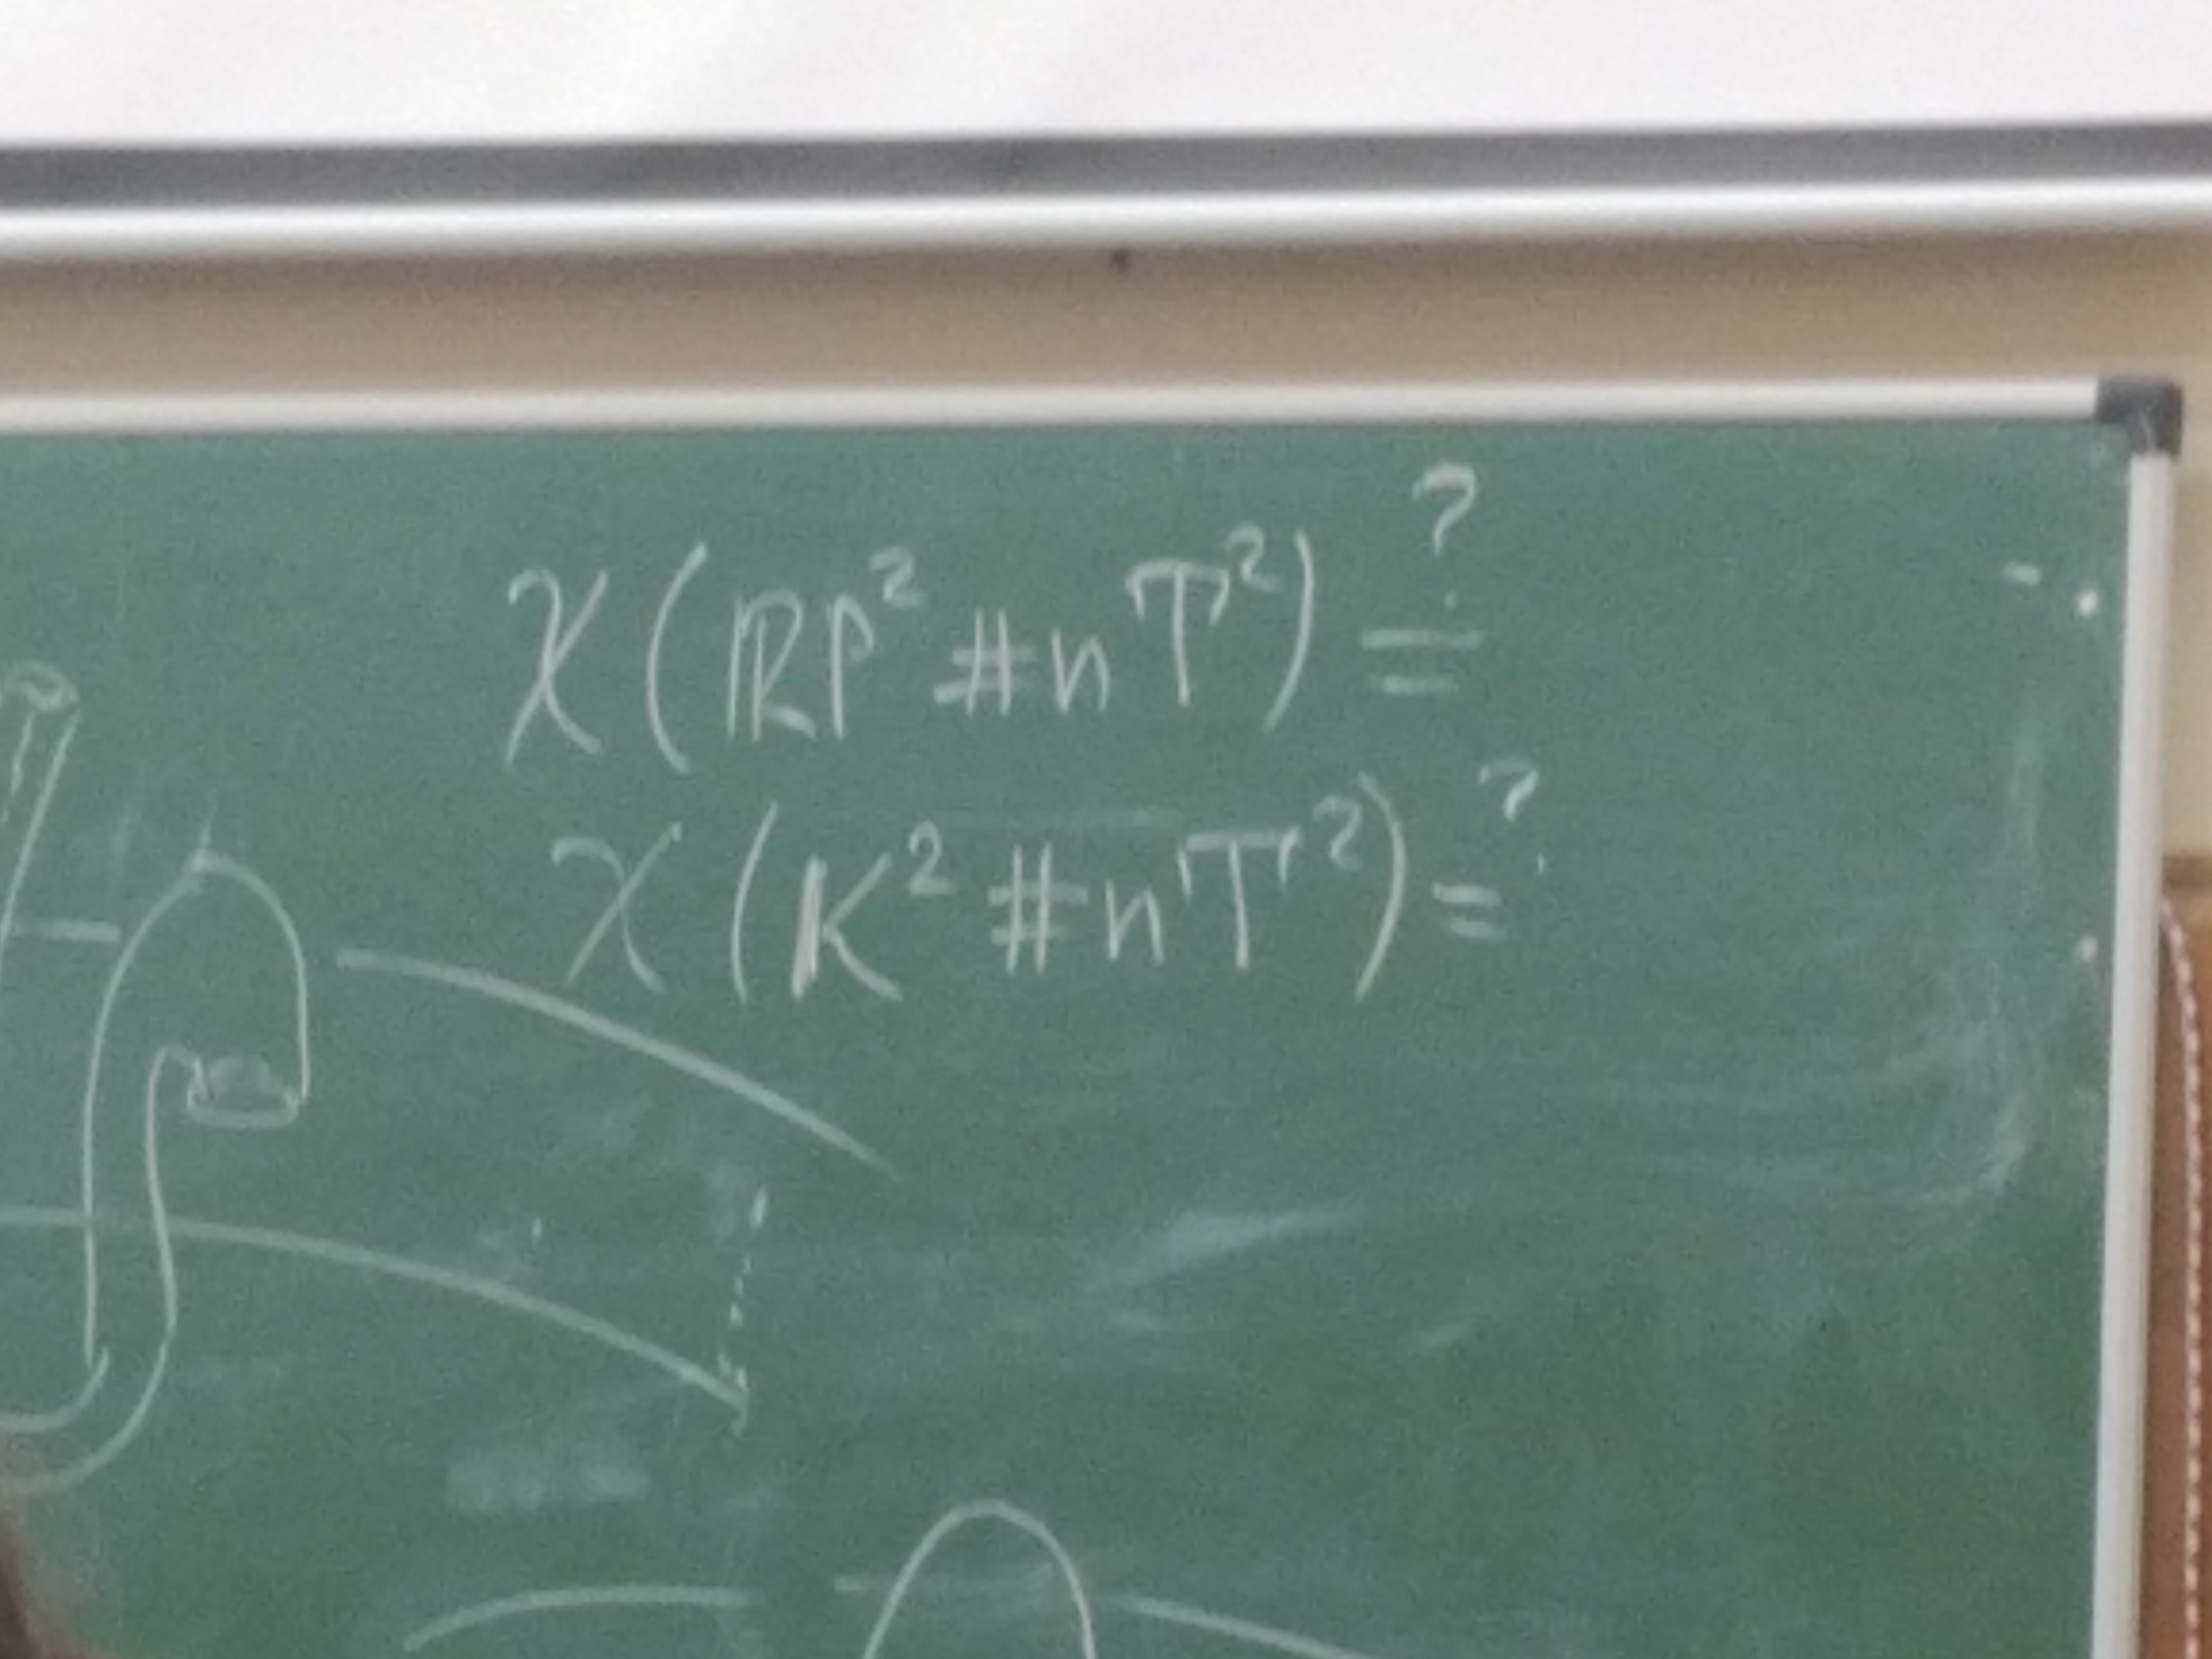 χ(ℝP² # nT²) = ?
χ(K² # nT²) = ?